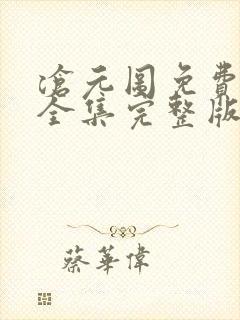 滄元圖免費
全集完整版
蔡華偉